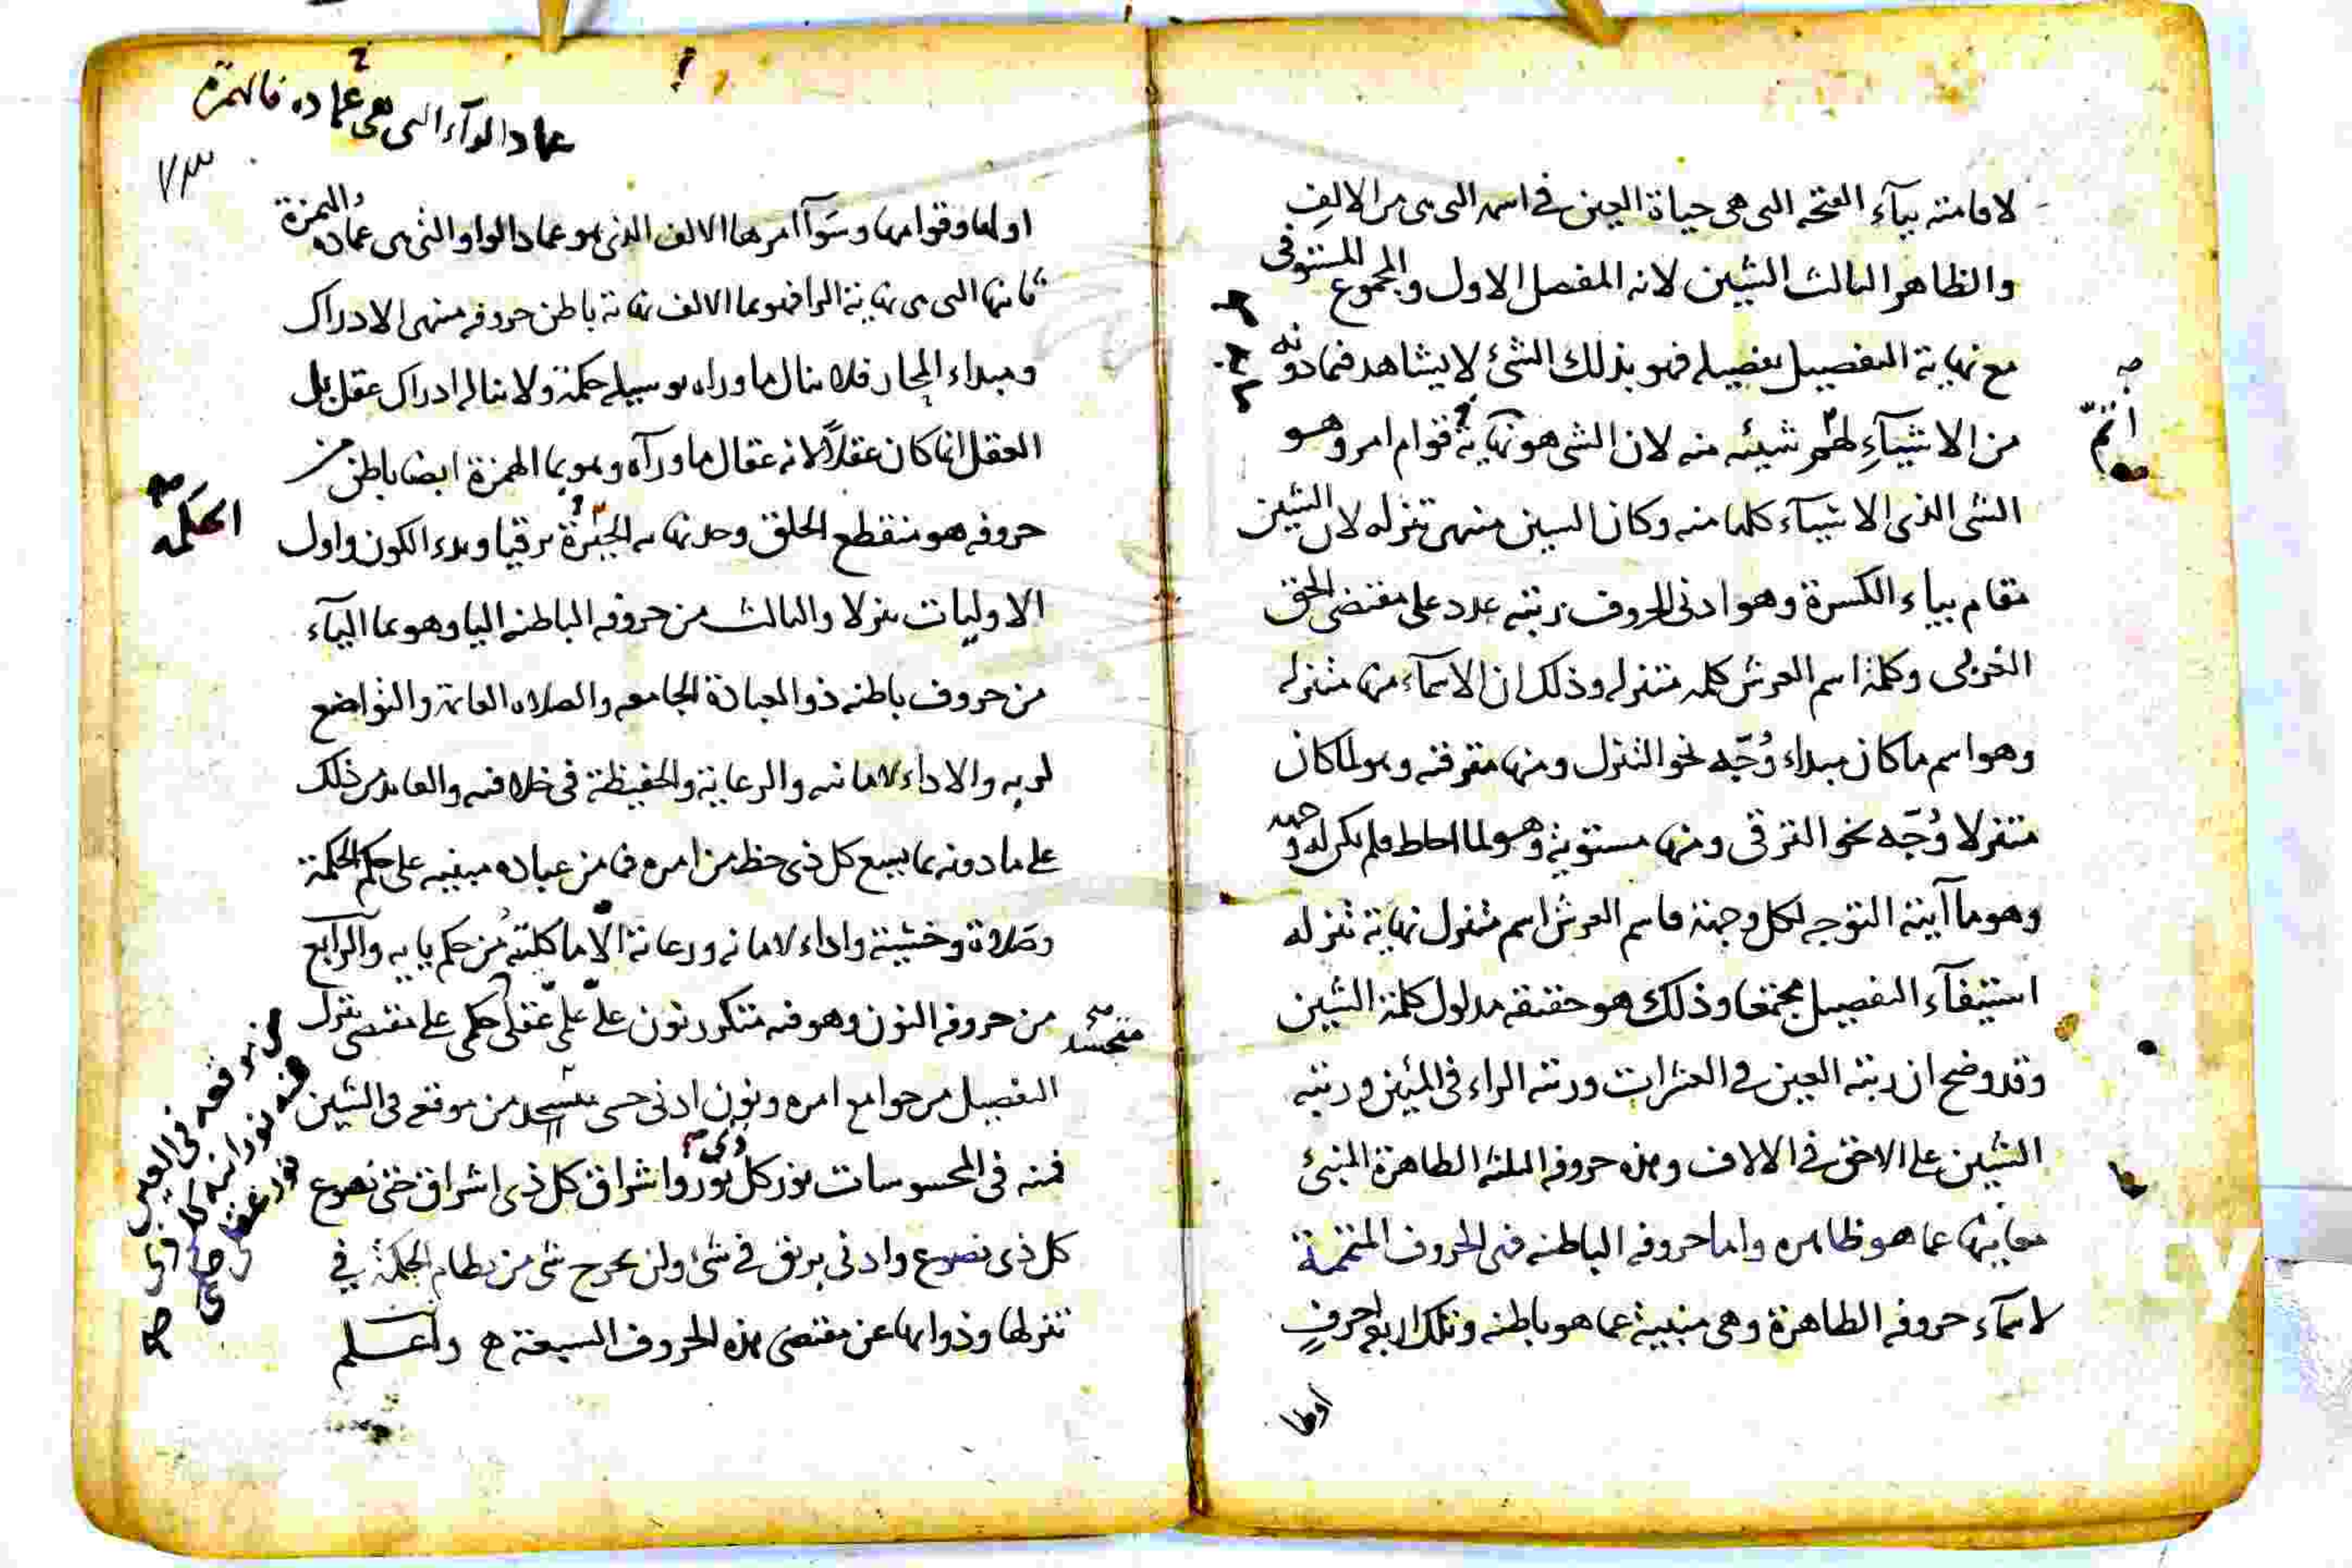 لاقامته بيآء الفتحه التى هى حياة العين فى اسمه التى هى من الالفِ
والظاهر الثالث الشين لانه المفصل الاول والمجموع المستوفى
مع نهاية التفصيل تفصيله فهو بذلك الشئ لا يشاهد فيما دونه
من الاشيآءِ شيئه منه لان الشى هو نهاية قوام امر وهو
الشى الذى الاشيآء كلها منه وكان السين منهى تنزله لان الشين
مقام بياء الكسرة وهو ادنى الحروف رتبته عدد على مقتضى الحق
الغربى وكلمة اسم العرش كلمه متنزله وذلك ان الاسمآء منها متنزله
وهو اسم ما كان مبداء وُجّه نحو التنزل ومنها مترقيه وهو لما كان
متنزلا وُجّه نحو الترقى ومنها مستوية وهو لما احاط فلم يكن له وجهه
وهو ما آيته التوجه لكل وجهة فاسم العرش اسم متنزل نهاية تنزله
استيفآء التفصيل مجتمعا وذلك هو حقيقه مدلول كلمة الشين
وقد وضح ان رتبه العين فى العشرات ورتبه الراء فى المئين ورتبه
الشين على الاحق فى الالاف وهذه حروفه الثلثه الظاهرة المنبئ
معانيها عما هو ظاهره واما حروفه الباطنه فهى الحروف المتممة
لاسمآء حروفه الظاهرة وهى منبية عما هو باطنه وتلك اربعه احرفٍ
اولها
اتمّ
عماد الوآء التى هى عماده فالهمزة
٧٣
اولها وقوامها وسوآ امرها الالف الذى هو عماد الواو التى هى عماده والهمزة
ثانيها التى هى نهاية الرا فهو بما الالف نهاية باطن حروفه منهى الادراك
ومبداء المحار فلا ينال ما وراه بوسيله حكمة ولا يناله ادراك عقل بل
العقل انما كان عقلاً لانه عقال ما ورآه وهو بما الهمزة ايضا باطن من
حروفه هو منقطع الخلق وحد نهايه ترقيا وبدء الكون واول
الاوليات تنزلا والثالث من حروفه الباطنه اليا وهو بما اليآء
من حروف باطنه ذو العبادة الجامعه والصلاه القائمة والتواضع
لربه والاداء لامانته والرعاية والحفيظة فى خلافته والعايد من ذلك
على ما دونه بما يسع كل ذى حظ من امره فما من عباده مبنيه على حكم الحكمة
وصلاة وخشية واداء لامانه ورعاية الاّما كليته من حكم يايه والرابع
من حروفه النون وهو فيه متكرر نون على علىّ عقلى حكمى على مقتضى تنزل
التفصيل من جوامع امره ونون ادنى حسى من موقعه فى الشين
فمنه فى المحسوسات نور كل ذى نور واشراق كل ذى اشراق حتى نصوع
كل ذى نصوع وادنى بريق فى شئ ولن يخرج شى من نظام الحكمة فى
تنزلها وذواتها عن مقتضى هذه الحروف السبعة واعلم
الحكمه